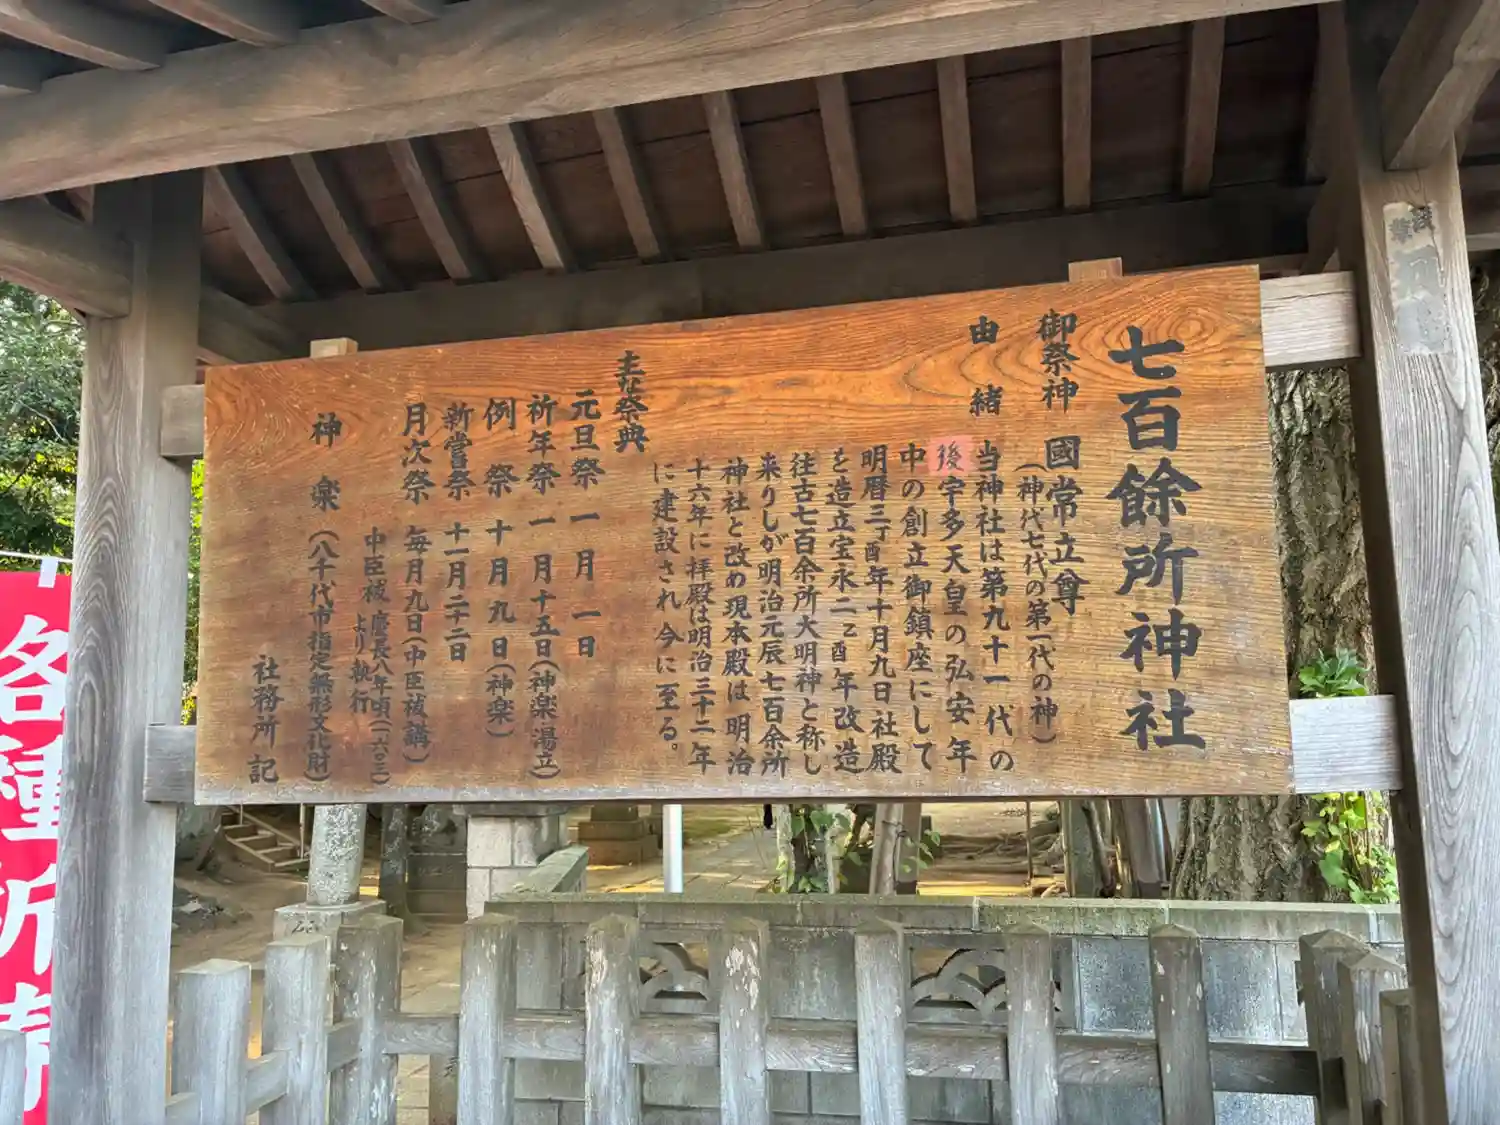 七百餘所神社
御祭神 國常立尊
(神代七代の第一代の神)
由緒 当神社は第九十一代の
後宇多天皇の弘安年
中の創立御鎮座にして
明暦三丁酉年十月九日社殿
を造立宝永二乙酉年改造
往古七百余所大明神と称し
来りしが明治元辰七百余所
神社と改め現本殿は明治
十六年に拝殿は明治三十二年
に建設され今に至る。
主な祭典
元旦祭 一月一日
祈年祭 一月十五日(神楽湯立)
例祭 十月九日(神楽)
新嘗祭 十一月二十二日
月次祭 毎月九日(中臣祓講)
中臣祓 慶長八年頃(一六〇三)
より執行
神楽 (八千代市指定無形文化財)
社務所記
各種祈祷